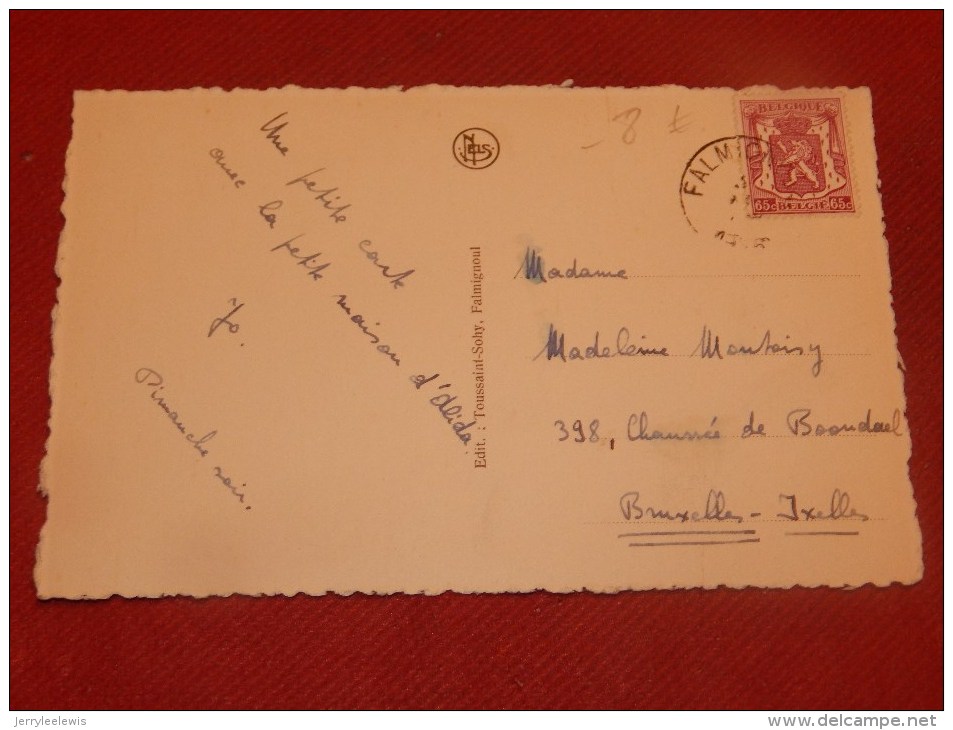 Une petite carte
avec la petite maison d'Alida.
Jo.
Dimanche soir.
NELS
Edit. : Toussaint-Sohy, Falmignoul
BELGIQUE
65c BELGIE 65c
FALMIG
Madame
Madeleine Montoisy
398, Chaussée de Boondael
Bruxelles - Ixelles
jerryleelewis
www.delcampe.net